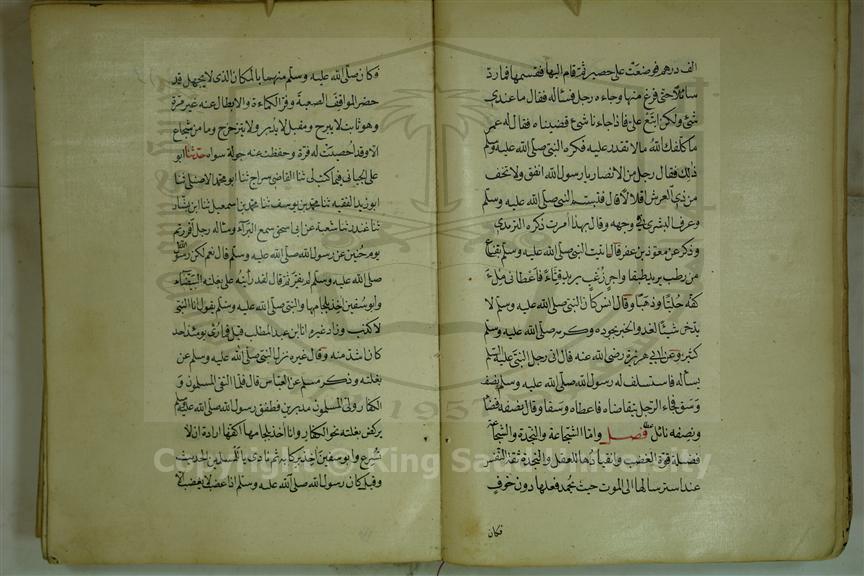 الف درهم فوضعت على حصير ثم قام اليها فقسمها فما ردّ
سائلا حتى فرغ منها وجاءه رجل فسأله فقال ما عندي
شئ ولكن ابتع علىّ فاذا جاءنا شئ قضيناه فقال له عمر
ما كلفك الله ما لا تقدر عليه فكره النبى صلى الله عليه وسلم
ذلك فقال رجل من الانصار يا رسول الله انفق ولا تخف
من ذى العرش اقلالا قال فتبسم النبى صلى الله عليه وسلم
وعرف البشرى فى وجهه وقال بهذا امرت ذكره الترمذى
وذكر عن معوذ بن عفر قال اتيت النبى صلى الله عليه وسلم بقناع
من رطب يريد طبقا واجر زغب يريد قثاء فاعطانى ملء
كفه حليا وذهبا وقال انس كان النبى صلى الله عليه وسلم لا
يدخر شيئا لغد والخبر بجوده وكرمه صلى الله عليه وسلم
كثير وعن ابى هريرة رضى الله عنه قال اتى رجل النبى عليه السلم
يسأله فاستسلف له رسول الله صلى الله عليه وسلم نصف
وسق فجاء الرجل يتقاضاه فاعطاه وسقا وقال نصفه قضاء
ونصفه نائل فصل واما الشجاعة والنجدة والشجاعة
فضيلة قوة الغضب وانقيادها للعقل والنجدة ثقة النفس
عند استرسالها الى الموت حيث يحمد فعلها دون خوف
فكان
وكان صلى الله عليه وسلم منهما بالمكان الذى لا يجهل قد
حضر المواقف الصعبة وفر الكماة والابطال عنه غير مرة
وهو ثابت لا يبرح ومقبل لا يدبر ولا يتزحزح وما من شجاع
الا وقد احصيت له فرة وحفظت عنه جولة سواه حدثنا ابو
على الجيانى فيما كتب لى ثنا القاضى سراج ثنا ابو محمد الاصيلى ثنا
ابو زيد الفقيه ثنا محمد بن يوسف ثنا محمد بن اسمعيل ثنا ابن بشار
ثنا غندر ثنا شعبة عن ابى اسحق سمع البراء وسأله رجل افررتم
يوم حنين عن رسول الله صلى الله عليه وسلم قال نعم لكن رسول الله
صلى الله عليه وسلم لم يفر ثم قال لقد رأيته على بغلته البيضاء
وابو سفين اخذ بلجامها والنبى صلى الله عليه وسلم يقول انا النبى
لا كذب وزاد غيره انا ابن عبد المطلب قيل فما رئى يومئذ احد
كان اشد منه وقال غيره نزل النبى صلى الله عليه وسلم عن
بغلته وذكر مسلم عن العباس قال فلما التقى المسلمون و
الكفار ولى المسلمون مدبرين فطفق رسول الله صلى الله عليه وسلم
يركض بغلته نحو الكفار وانا اخذ بلجامها اكفها ارادة ان لا
تسرع وابو سفين اخذ بركابه ثم نادى يا للمسلمين الحديث
وقيل كان رسول الله صلى الله عليه وسلم اذا غضب ولا يغضب الا
1957
Copyright © King Saud University